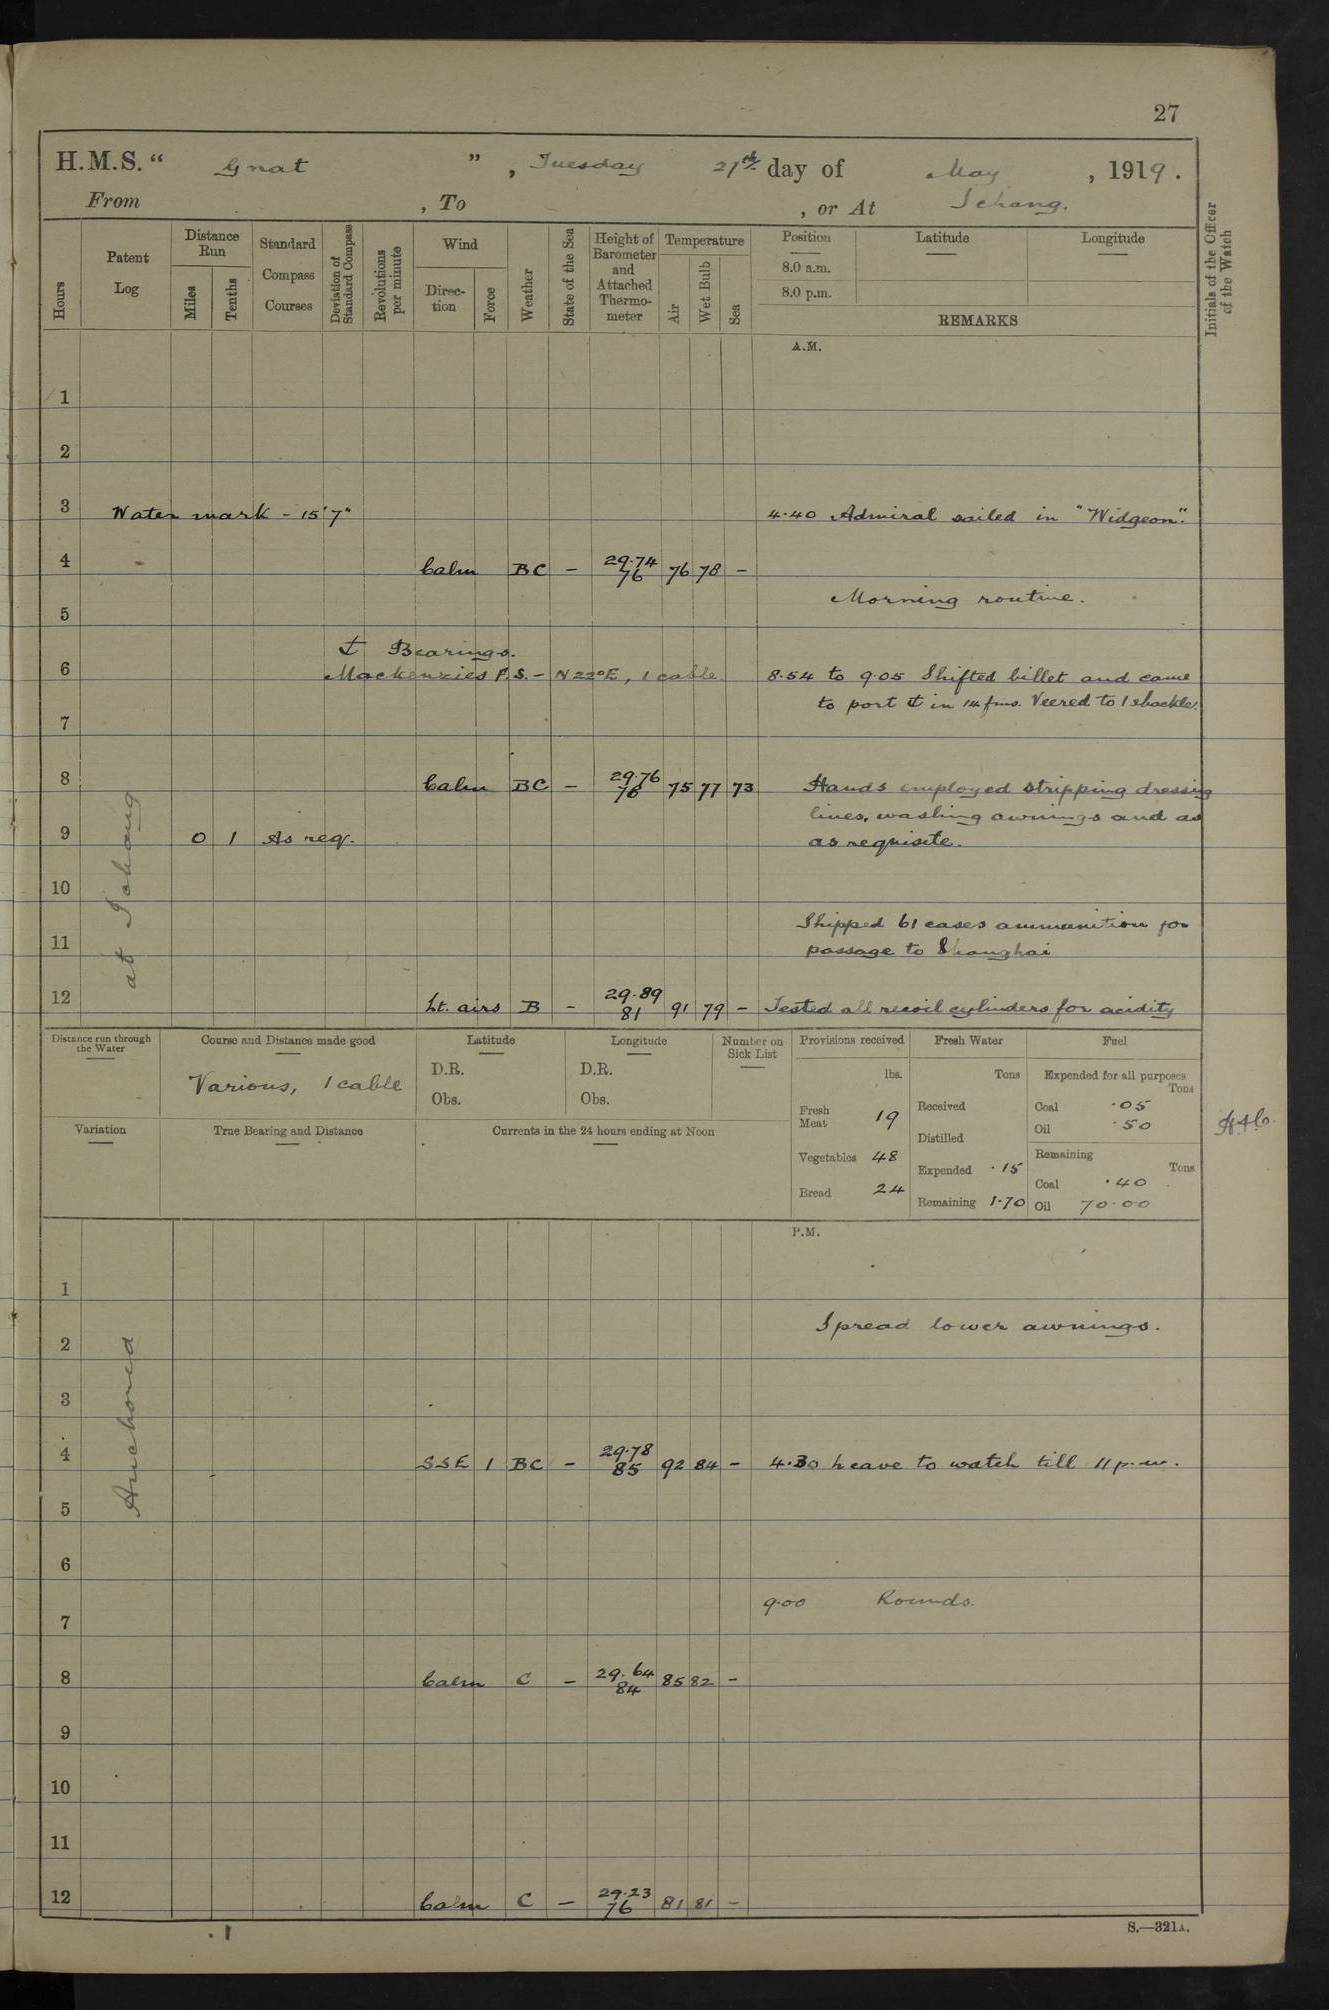 27
H.M.S. “ Gnat ” , Tuesday 27th day of May , 1919 .
From , To , or At Ichang.
Hours
Patent Log
Distance Run
Miles
Tenths
Standard Compass Courses
Deviation of Standard Compass
Revolutions per minute
Wind
Direction
Force
Weather
State of the Sea
Height of Barometer and Attached Thermometer
Temperature
Air
Wet Bulb
Sea
Position
8.0 a.m.
8.0 p.m.
Latitude
Longitude
REMARKS
Initials of the Officer of the Watch
A.M.
1
2
3 Water mark - 15' 7" 4.40 Admiral sailed in "Widgeon".
4 Calm BC - 29.74 76 76 78 -
Morning routine.
5
⚓ Bearings.
6 Mackenzies F.S. - N 22° E, 1 cable 8.54 to 9.05 Shifted billet and came
to port ⚓ in 14 fms. Veered to 1 shackle.
7
8 Calm BC - 29.76 76 75 77 73 Hands employed stripping dressing
lines, washing awnings and as
9 0 1 As req. as requisite.
at Ichang
10
Shipped 61 cases ammunition for
11 passage to Shanghai
12 Lt. airs B - 29.89 81 91 79 - Tested all recoil cylinders for acidity
Distance run through the Water
Course and Distance made good
Various, 1 cable
Latitude
D.R.
Obs.
Longitude
D.R.
Obs.
Number on Sick List
Provisions received
lbs.
Fresh Meat 19
Vegetables 48
Bread 24
Fresh Water
Tons
Received
Distilled
Expended .15
Remaining 1.70
Fuel
Expended for all purposes
Tons
Coal .05
Oil .50
Remaining
Tons
Coal .40
Oil 70.00
Variation
True Bearing and Distance
Currents in the 24 hours ending at Noon
P.M.
1
Spread lower awnings.
2
3
4 SSE 1 BC - 29.78 85 92 84 - 4.30 Leave to watch till 11 p.m.
Anchored
5
6
9.00 Rounds.
7
8 Calm C - 29.64 84 85 82 -
9
10
11
12 Calm C - 29.23 76 81 81 -
S.—321A.